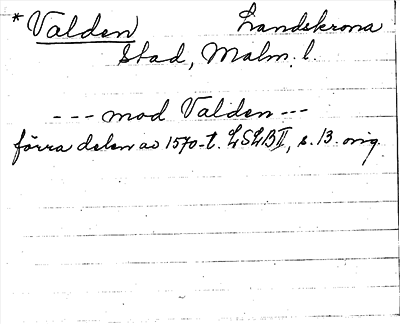 *Valden Landskrona
Stad, Malm. l.
--- mod Valden ---
förra delen av 1570-t. LSLB II, s. 13. orig.